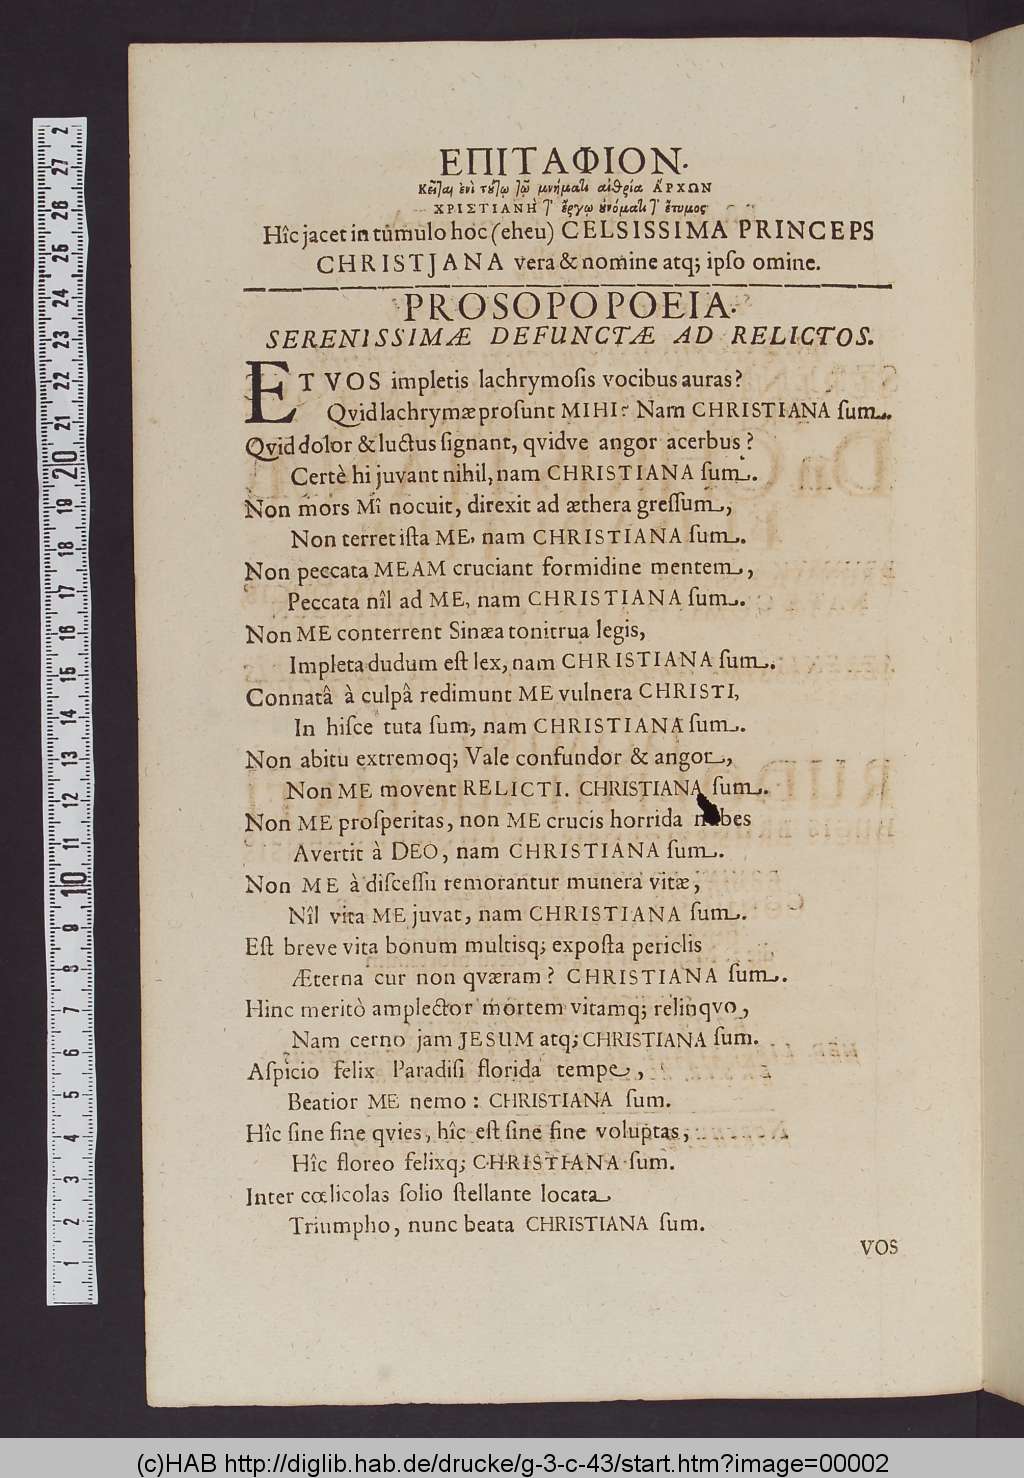 ΕΠΙΤΑΦΙΟΝ.
Κεῖται ἐνὶ τȣ́τῳ τῷ μνήματι αἰθρία ἌΡΧΩΝ
ΧΡΙΣΤΙΑΝῊ τ' ἔργῳ ȣ̓νόματι τ' ἔτυμος
Hîc jacet in tumulo hoc (eheu) CELSISSIMA PRINCEPS
CHRISTJANA vera & nomine atq; ipſo omine.
PROSOPOPOEIA.
SERENISSIMÆ DEFUNCTÆ AD RELICTOS.
ET VOS impletis lachrymoſis vocibus auras?
Qvid lachrymæ proſunt MIHI? Nam CHRISTIANA ſum.
Qvid dolor & luctus ſignant, qvidve angor acerbus?
Certè hi juvant nihil, nam CHRISTIANA ſum.
Non mors Mî nocuit, direxit ad æthera greſſum,
Non terret iſta ME, nam CHRISTIANA ſum.
Non peccata MEAM cruciant formidine mentem,
Peccata nîl ad ME, nam CHRISTIANA ſum.
Non ME conterrent Sinæa tonitrua legis,
Impleta dudum eſt lex, nam CHRISTIANA ſum.
Connatâ à culpâ redimunt ME vulnera CHRISTI,
In hiſce tuta ſum, nam CHRISTIANA ſum.
Non abitu extremoq; Vale confundor & angor,
Non ME movent RELICTI. CHRISTIANA ſum.
Non ME proſperitas, non ME crucis horrida nubes
Avertit à DEO, nam CHRISTIANA ſum.
Non ME à diſceſſu remorantur munera vitæ,
Nîl vita ME juvat, nam CHRISTIANA ſum.
Eſt breve vita bonum multisq; expoſta periclis
Æterna cur non qværam? CHRISTIANA ſum.
Hinc meritò amplector mortem vitamq; relinqvo,
Nam cerno jam JESUM atq; CHRISTIANA ſum.
Aſpicio felix Paradiſi florida tempe,
Beatior ME nemo: CHRISTIANA ſum.
Hîc ſine fine qvies, hîc eſt ſine fine voluptas,
Hîc floreo felixq; CHRISTIANA ſum.
Inter cœlicolas ſolio ſtellante locata
Triumpho, nunc beata CHRISTIANA ſum.
VOS
1 2 3 4 5 6 7 8 9 10 11 12 13 14 15 16 17 18 19 20 21 22 23 24 25 26 27 2
(c)HAB http://diglib.hab.de/drucke/g-3-c-43/start.htm?image=00002